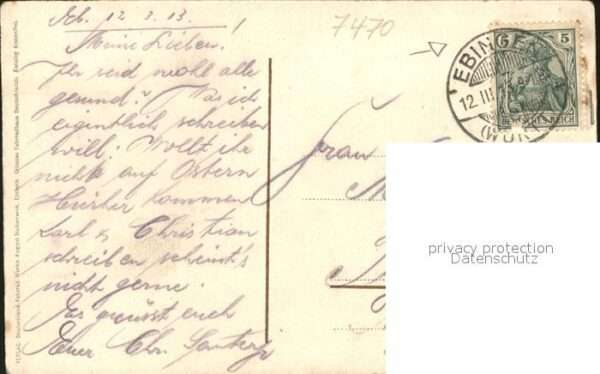 Eb. 12. 3. 13.
Meine Lieben!
Ihr seid wohl alle
gesund? Was ich
eigentlich schreiben
will: Wollt ihr
nicht auf Ostern
Hierher kommen
Karl & Christian
schreiben scheint's
nicht gerne.
Es grüsst euch
Euer Chr.
7470
Frau
EBINGEN
12 III
5
DEUTSCHES REICH
privacy protection
Datenschutz